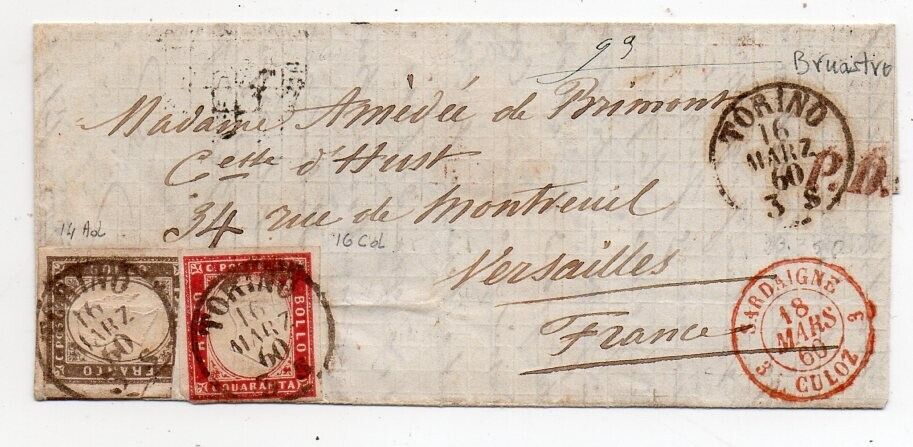 99
Bruastro
Madame Amédée de Brimont
Cesse d'Hust
34 rue de Montreuil
Versailles
France
TORINO
16
MARZ
60
3 S
P.D.
14 Ad
16 Cd
C. POS
FRANCO
TORINO
16
MARZ
60
C. POS
BOLLO
C. QUARANTA
TORINO
16
MARZ
60
SARDAIGNE
18
MARS
60
3 CULOZ 3